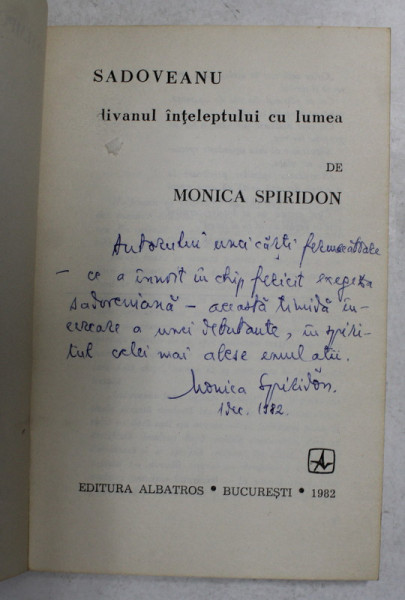 SADOVEANU
divanul înţeleptului cu lumea
DE
MONICA SPIRIDON
Autorului unei cărți fermecătoare
– ce a înnoit în chip fericit exegeza
sadoveniană – această timidă în-
cercare a unei debutante, în spiri-
tul celei mai alese emulații.
Monica Spiridon.
1 dec. 1982.
EDITURA ALBATROS • BUCUREŞTI • 1982